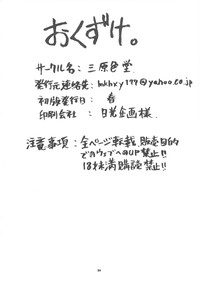 おくずけ。
サークル名：三原色堂
発行元連絡先：hkhxy177@yahoo.co.jp
初版発行日：春
印刷会社：日光企画様
注意事項：全ページ転載、販売目的
でのウェブへのUP禁止!!
18才未満購読禁止!!